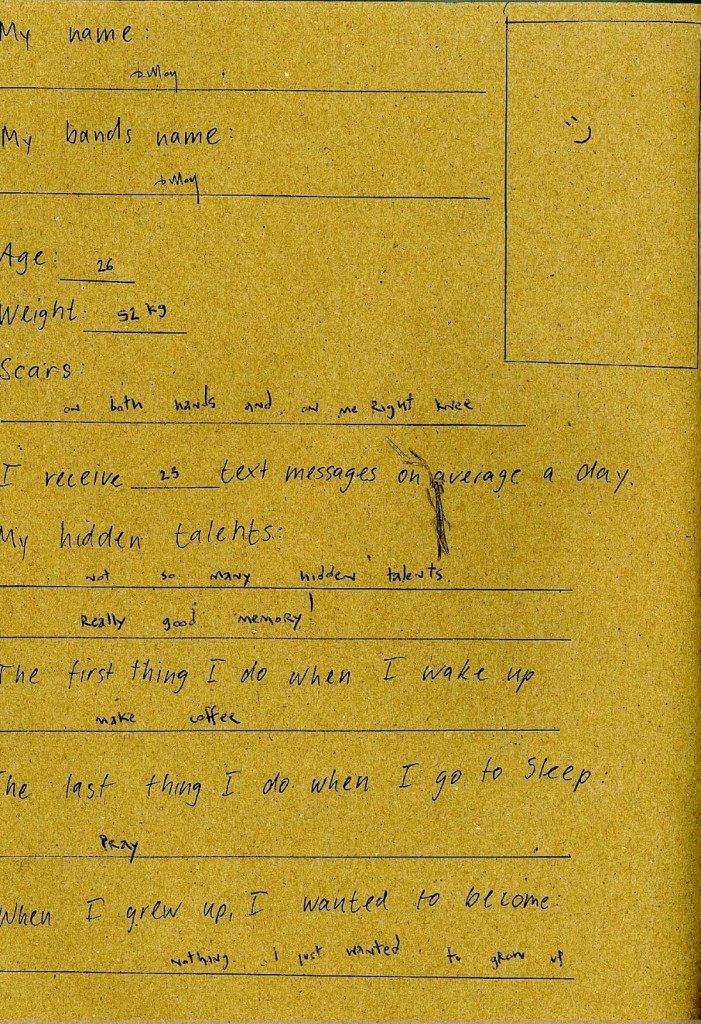 My name:
My bands name:
Age: 26
Weight: 52 kg
Scars:
on both hands and on me Right knee
I receive 23 text messages on average a day.
My hidden talents:
not so many hidden talents.
Really good memory!
The first thing I do when I wake up
make coffee
The last thing I do when I go to sleep:
Pray
When I grew up, I wanted to become:
nothing i just wanted to grow up